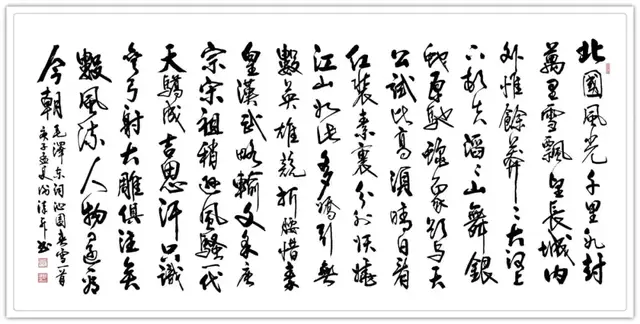 北國風光千里冰封
萬里雪飄望長城內
外惟餘莽〻大河上
下頓失滔〻山舞銀
蛇原馳蠟象欲與天
公試比高須晴日看
紅裝素裹分外妖嬈
江山如此多嬌引無
數英雄競折腰惜秦
皇漢武略輸文采唐
宗宋祖稍遜風騷一代
天驕成吉思汗只識
彎弓射大雕俱往矣
數風流人物還看
今朝
毛澤东词沁園春雪一首
庚子孟夏 書